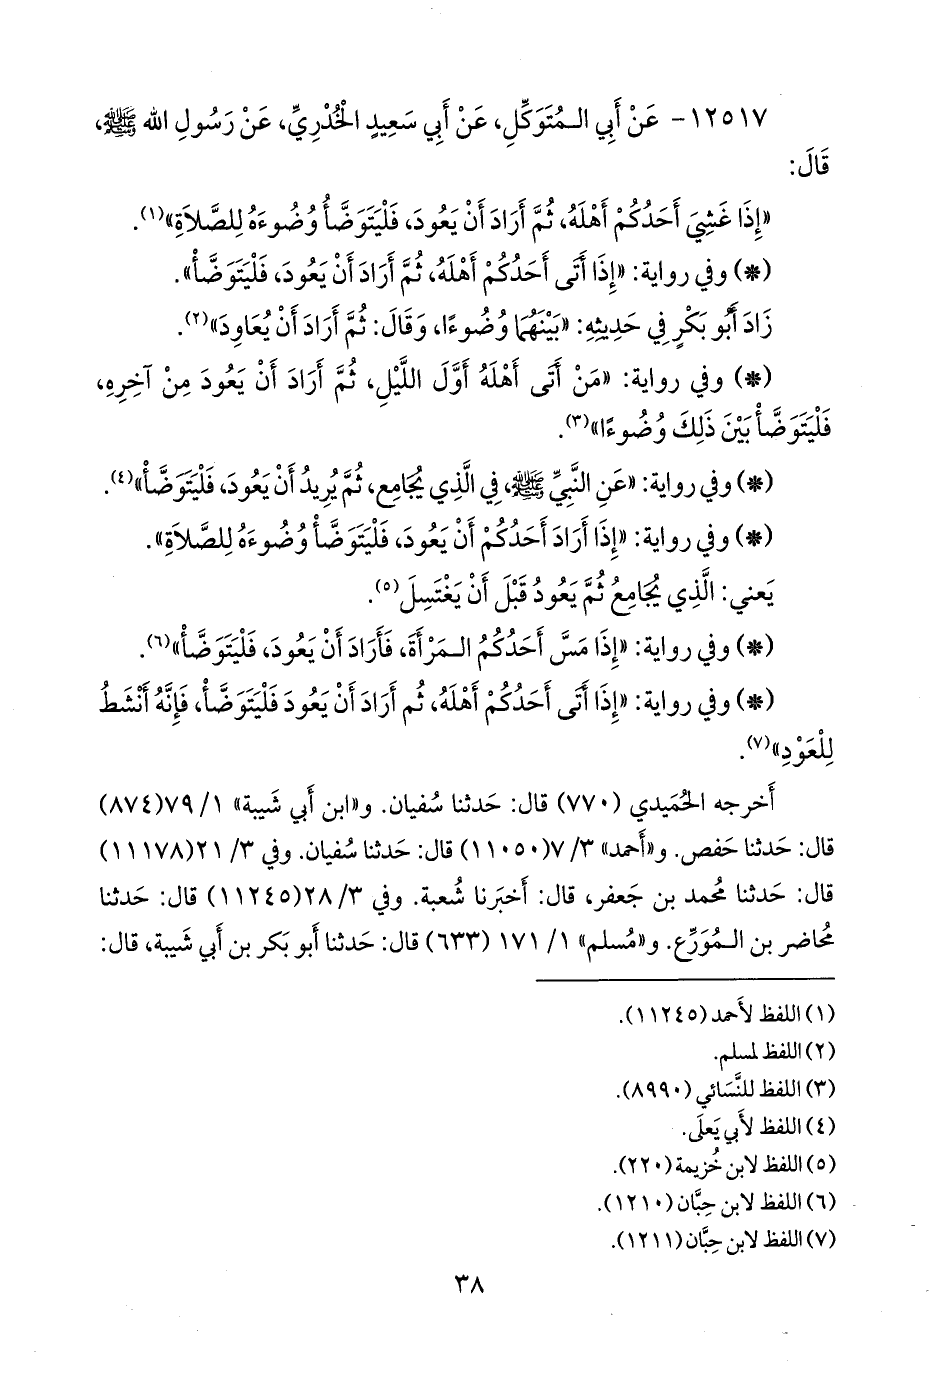 ١٢٥١٧- عَنْ أَبِي الـمُتَوَكِّلِ، عَنْ أَبِي سَعِيدٍ الْخُدْرِيِّ، عَنْ رَسُولِ الله ﷺ،
قَالَ:
«إِذَا غَشِيَ أَحَدُكُمْ أَهْلَهُ، ثُمَّ أَرَادَ أَنْ يَعُودَ، فَلْيَتَوَضَّأْ وُضُوءَهُ لِلصَّلاَةِ»(١).
(*) وفي رواية: «إِذَا أَتَى أَحَدُكُمْ أَهْلَهُ، ثُمَّ أَرَادَ أَنْ يَعُودَ، فَلْيَتَوَضَّأْ».
زَادَ أَبُو بَكْرٍ فِي حَدِيثِهِ: «بَيْنَهُمَا وُضُوءًا، وَقَالَ: ثُمَّ أَرَادَ أَنْ يُعَاوِدَ»(٢).
(*) وفي رواية: «مَنْ أَتَى أَهْلَهُ أَوَّلَ اللَّيْلِ، ثُمَّ أَرَادَ أَنْ يَعُودَ مِنْ آخِرِهِ،
فَلْيَتَوَضَّأْ بَيْنَ ذَلِكَ وُضُوءًا»(٣).
(*) وفي رواية: «عَنِ النَّبِيِّ ﷺ، فِي الَّذِي يُجَامِعِ، ثُمَّ يُرِيدُ أَنْ يَعُودَ، فَلْيَتَوَضَّأْ»(٤).
(*) وفي رواية: «إِذَا أَرَادَ أَحَدُكُمْ أَنْ يَعُودَ، فَلْيَتَوَضَّأْ وُضُوءَهُ لِلصَّلاَةِ».
يَعني: الَّذِي يُجَامِعُ ثُمَّ يَعُودُ قَبْلَ أَنْ يَغْتَسِلَ(٥).
(*) وفي رواية: «إِذَا مَسَّ أَحَدُكُمُ الـمَرْأَةَ، فَأَرَادَ أَنْ يَعُودَ، فَلْيَتَوَضَّأْ»(٦).
(*) وفي رواية: «إِذَا أَتَى أَحَدُكُمْ أَهْلَهُ، ثُم أَرَادَ أَنْ يَعُودَ فَلْيَتَوَضَّأْ، فَإِنَّهُ أَنْشَطُ
لِلْعَوْدِ»(٧).
أَخرجه الحُمَيدي (٧٧٠) قال: حَدثنا سُفيان. و«ابن أَبي شَيبة» ١/ ٧٩(٨٧٤)
قال: حَدثنا حَفص. و«أَحمد» ٣/ ٧(١١٠٥٠) قال: حَدثنا سُفيان. وفي ٣/ ٢١(١١١٧٨)
قال: حَدثنا مُحمد بن جَعفر، قال: أَخبَرنا شُعبة. وفي ٣/ ٢٨(١١٢٤٥) قال: حَدثنا
مُحاضر بن الـمُوَرِّع. و«مُسلم» ١/ ١٧١ (٦٣٣) قال: حَدثنا أَبو بَكر بن أَبي شَيبة، قال:
(١) اللفظ لأَحمد (١١٢٤٥).
(٢) اللفظ لمسلم.
(٣) اللفظ للنَّسَائي (٨٩٩٠).
(٤) اللفظ لأَبي يَعلَى.
(٥) اللفظ لابن خُزيمة (٢٢٠).
(٦) اللفظ لابن حِبَّان (١٢١٠).
(٧) اللفظ لابن حِبَّان (١٢١١).
٣٨